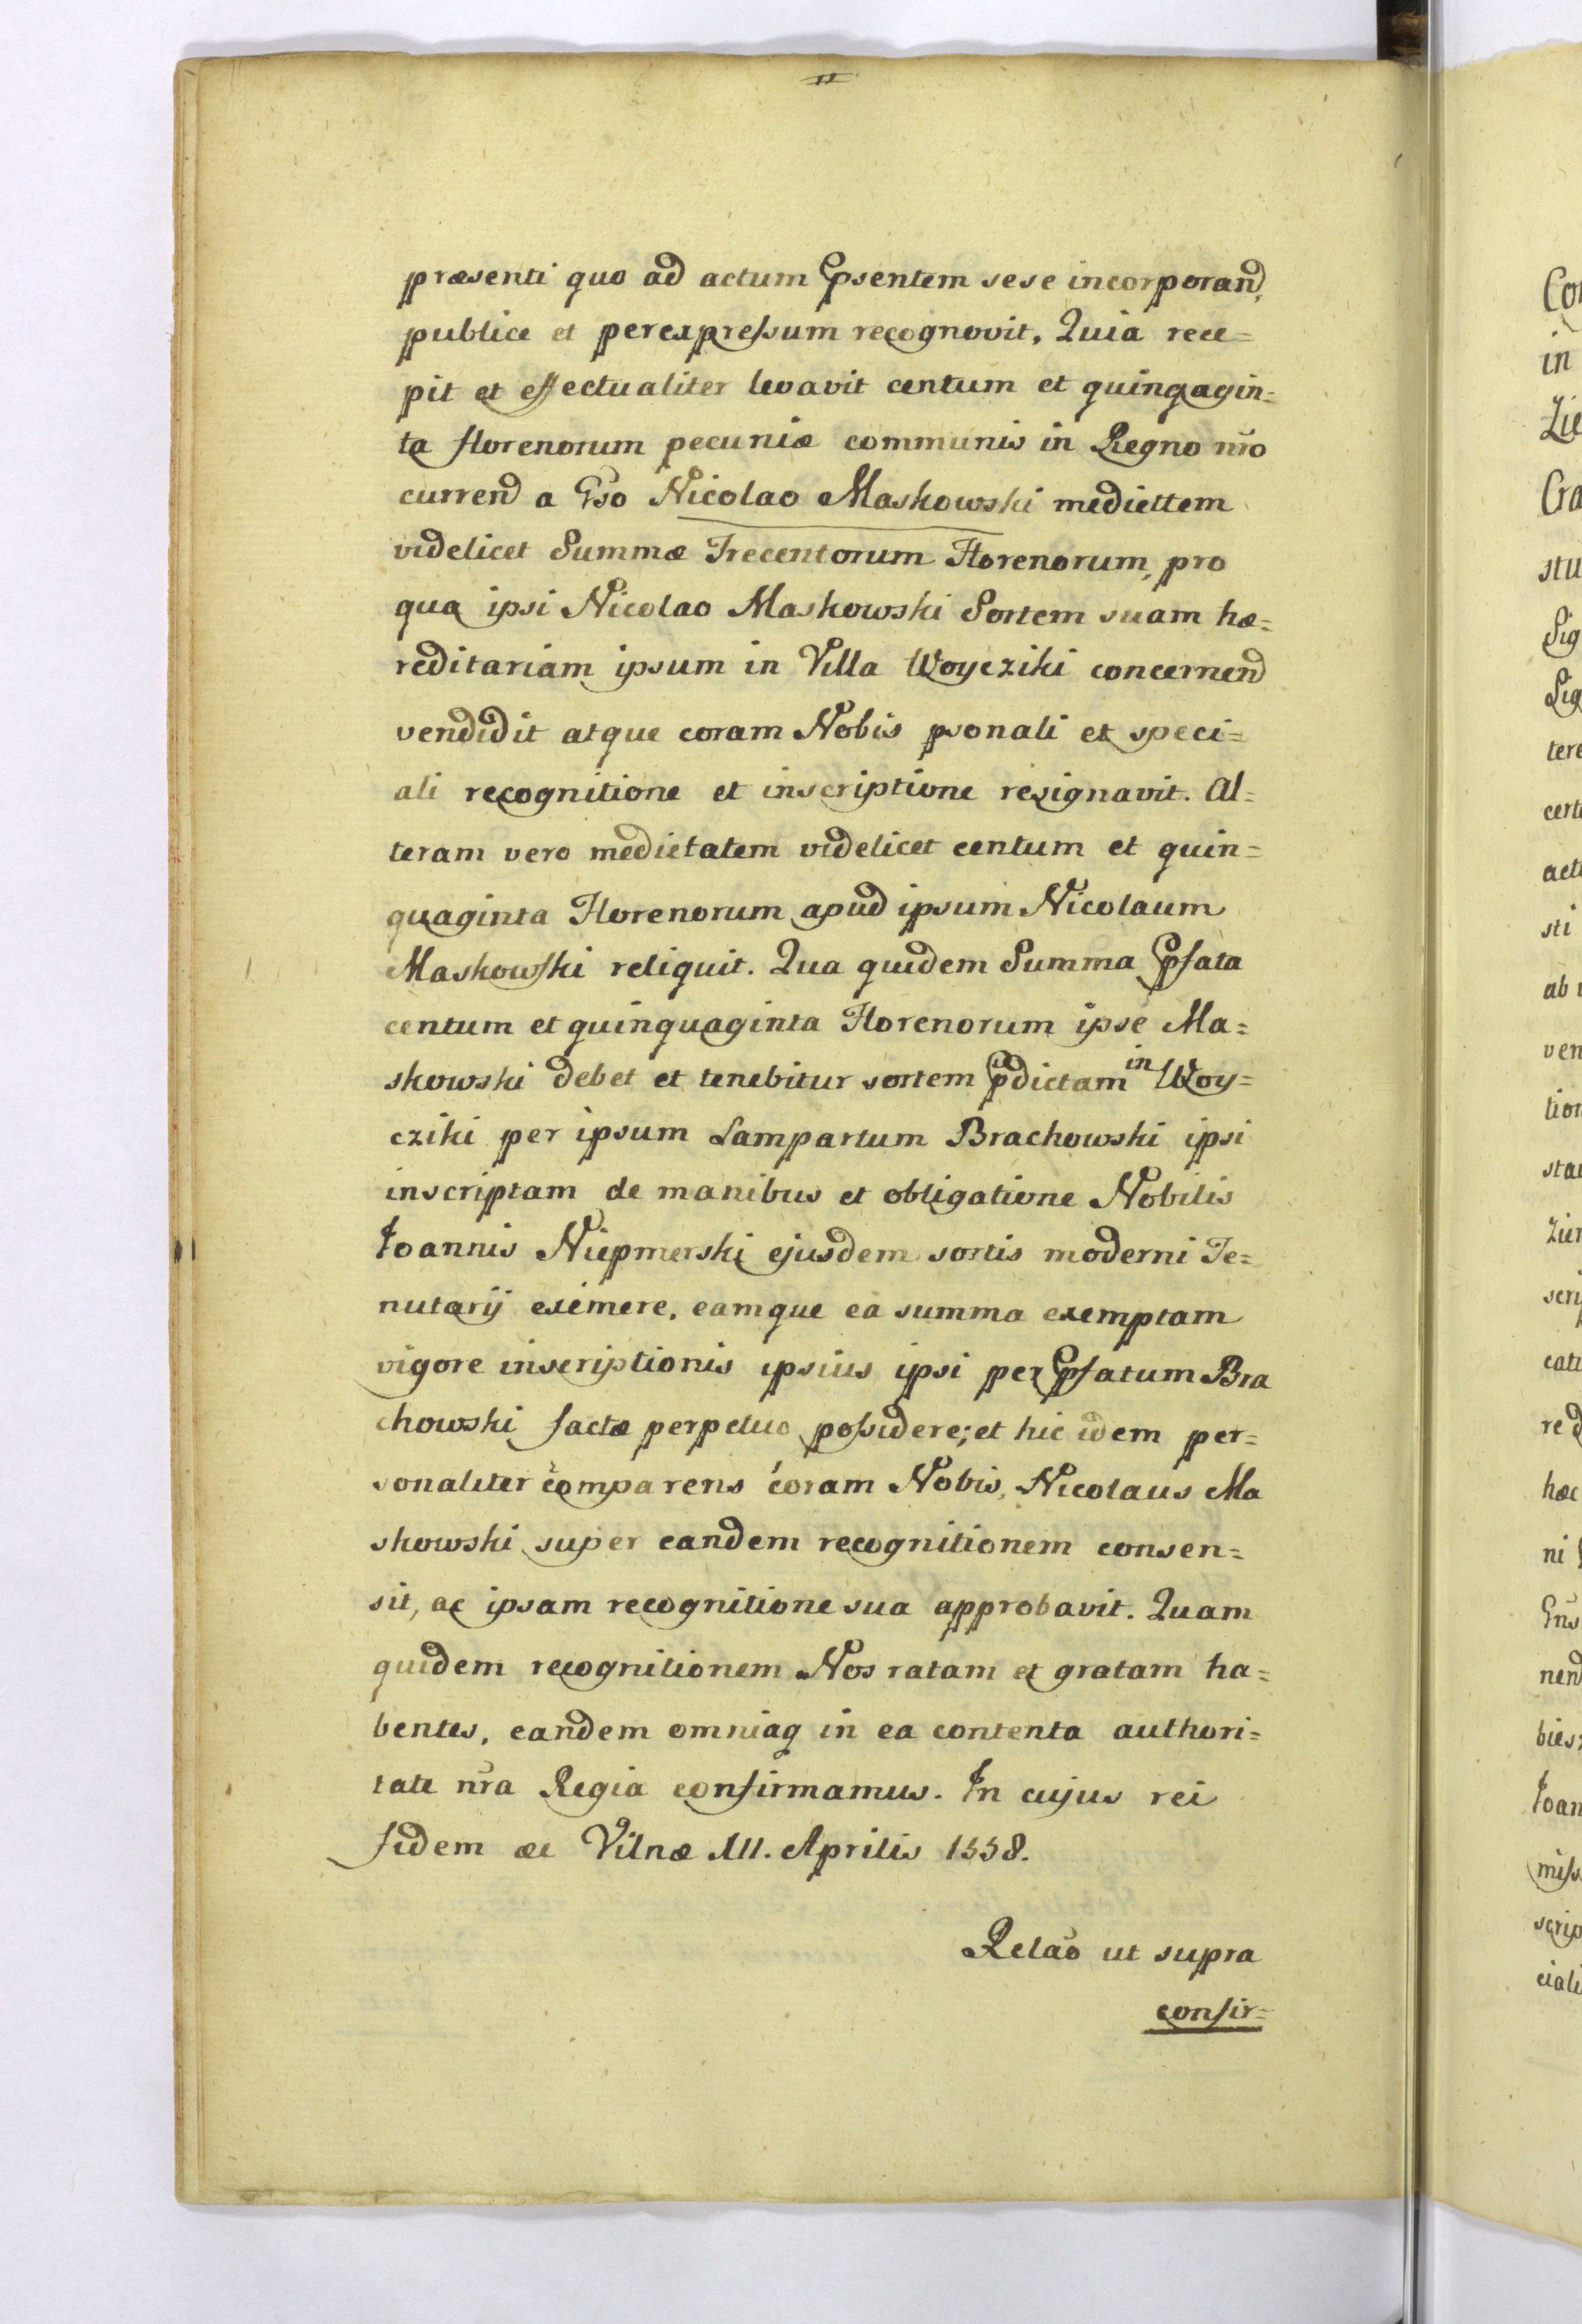 præsenti quo ad actum Ppsentem sese incorporand,
publice et per expressum recognovit. Quia rece=
pit et effectualiter levavit centum et quinqagin=
ta florenorum pecuniæ communis in Regno nro
currend a Gso Nicolao Maskowski mediettem
videlicet Summæ Trecentorum Florenorum, pro
qua ipsi Nicolao Maskowski Sortem suam hæ=
reditariam ipsum in Villa Woycziki concernend
vendidit atque coram Nobis psonali et speci=
ali recognitione et inscriptione resignavit. Al=
teram vero medietatem videlicet centum et quin=
quaginta Florenorum apud ipsum Nicolaum
Maskowski reliquit. Qua quidem Summa Ppfata
centum et quinquaginta Florenorum ipse Ma=
skowski debet et tenebitur sortem Ppdictam in Woy=
cziki per ipsum Lampartum Brachowski ipsi
inscriptam de manibus et obligatione Nobilis
Joannis Niepmerski ejusdem sortis moderni Te=
nutarij eximere, eamque ea summa exemptam
vigore inscriptionis ipsius ipsi per Ppfatum Bra
chowski factæ perpetuo possidere; et hic idem per=
sonaliter comparens coram Nobis, Nicolaus Ma
skowski super eandem recognitionem consen=
sit, ac ipsam recognitione sua approbavit. Quam
quidem recognitionem Nos ratam et gratam ha=
bentes, eandem omniaq in ea contenta authori=
tate nra Regia confirmamus. In cujus rei
fidem æc Vilnæ XII. Aprilis 1558.
Relao ut supra
confir=